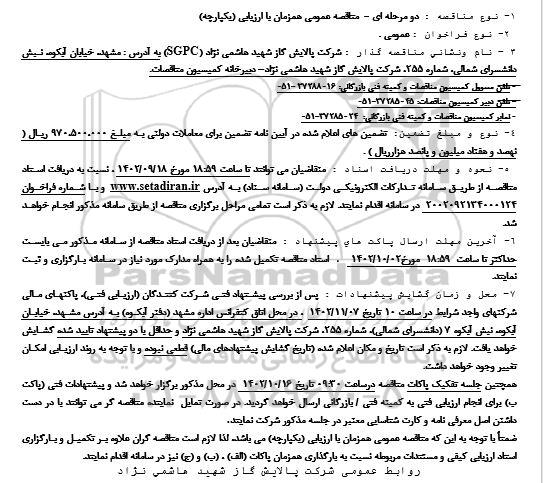 ۱- نوع مناقصه : دو مرحله ای - مناقصه عمومی همزمان با ارزیابی (یکپارچه)
۲- نوع فراخوان : عمومی .
۳ - نام ونشاني مناقصه گذار : شرکت پالایش گاز شهید هاشمی نژاد (SGPC) به آدرس : مشهد، خیابان آبکوه، نبش
دانشسرای شمالی، شماره ۲۵۵، شرکت پالایش گاز شهید هاشمی نژاد– دبیرخانه کمیسیون مناقصات.
- تلفن مسوول کمیسیون مناقصات و کمیته فنی بازرگانی: ۱۶-۳۷۲۸۸-۰۵۱
- تلفن دبیر کمیسیون مناقصات: ۴۵-۳۷۲۸۵-۰۵۱
- سایر کمیسیون مناقصات و کمیته فنی بازرگانی: ۲۴-۳۷۲۸۵-۰۵۱
٤- نوع و مبلغ تضمین: تضمین های اعلام شده در آیین نامه تضمین برای معاملات دولتی به مبلغ ۹۷۰،۵۰۰،۰۰۰ ریال (
نهصد و هفتاد میلیون و پانصد هزارریال ) .
۵- نحوه و مهلت دریافت اسناد : متقاضیان می توانند تا ساعت ۱۸:۵۹ مورخ ۱۴۰۲/۰۹/۱۸ ، نسبت به دریافت اسناد
مناقصه از طریق سامانه تدارکات الکترونیکی دولت (سامانه ستاد) به آدرس www.setadiran.ir و با شماره فراخوان
۲۰۰۲۰۹۲۱۳۴۰۰۰۱۲۴ در سامانه اقدام نمایند. لازم به ذکر است تمامی مراحل برگزاری مناقصه از طریق سامانه مذکور انجام خواهد
شد.
۶- آخرین مهلت ارسال پاکت های پیشنهاد : متقاضیان بعد از دریافت اسناد مناقصه از سامانه مذکور می بایست
حداکثر تا ساعت ۱۸:۵۹ مورخ۱۴۰۲/۱۰/۰۲ ، اسناد مناقصه تکمیل شده را به همراه مدارک مورد نیاز در سامانه بارگزاری و ثبت
نمایند.
۷- محل و زمان گشایش پیشنهادات : پس از بررسی پیشنهاد فنی شرکت کنندگان (ارزیابی فنی)، پاکتهای مالی
شرکتهای واجد شرایط در ساعت ۱۰ تاریخ ۱۴۰۲/۱۱/۰۷ ، در محل اتاق کنفرانس اداره مشهد (دفتر آبکوه) به آدرس مشهد، خیابان
آبکوه، نبش آبکوه ۷ (دانشسرای شمالی)، شماره ۲۵۵، شرکت پالایش گاز شهید هاشمی نژاد و حداقل با دو پیشنهاد تایید شده گشایش
خواهد یافت. لازم به ذکر است تاریخ و مکان اعلام شده (تاریخ گشایش پیشنهادهای مالی) قطعی نبوده و با توجه به روند ارزیابی امکان
تغییر وجود خواهد داشت.
همچنین جلسه تفکیک پاکات مناقصه درساعت ۰۹:۳۰ تاریخ ۱۴۰۲/۱۰/۱۶ در محل مذکور برگزار خواهد شد و پیشنهادات فنی (پاکت
ب) برای انجام ارزیابی فنی به کمیته فنی / بازرگانی ارسال خواهد گردید. در صورت تمایل نماینده مناقصه گر می توانند با در دست
داشتن اصل معرفی نامه و کارت شناسایی معتبر در جلسه مذکور شرکت نمایند.
ضمناً با توجه به این که مناقصه عمومی همزمان با ارزیابی (یکپارچه) می باشد. لذا لازم است مناقصه گران علاوه بر تکمیل و بارگزاری
اسناد ارزیابی کیفی و مستندات مربوطه نسبت به بارگذاری همزمان پاکات (الف) ، (ب) و (ج) نیز در سامانه اقدام نمایند.
روابط عمومی شرکت پالایش گاز شهید هاشمی نژاد
ParsNamadData